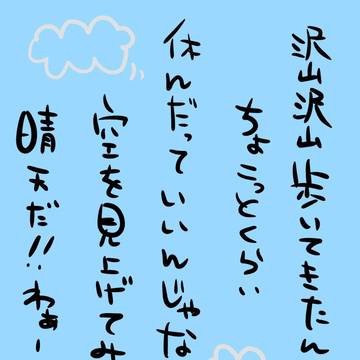 沢山沢山歩いてきたん
ちょこっとくらい
休んだっていいんじゃな
空を見上げてみ
晴天だ!!わぁー